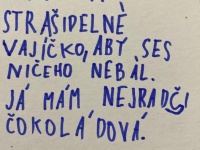 STRAŠIDELNÉ
VAJÍČKO, ABY SES
NIČEHO NEBÁL.
JÁ MÁM NEJRADČI
ČOKOLÁDOVÁ.